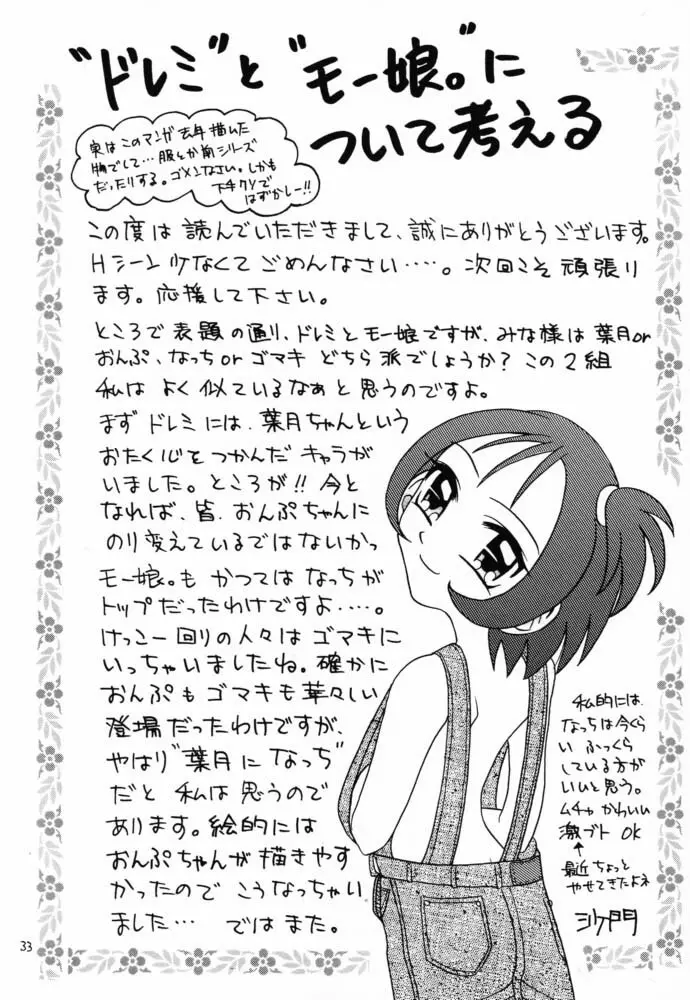 "ドレミ"と"モー娘。"に
ついて考える
実はこのマンガ去年描いた
物でして…服とか前シリーズ
だったりする。ゴメンなさい。しかも
下手クソで
はずかしー!!
この度は読んでいただきまして、誠にありがとうございます。
Hシーン少なくてごめんなさい……。次回こそ頑張り
ます。応援して下さい。
ところで表題の通り、ドレミとモー娘ですが、みな様は葉月or
おんぷ、なっちorゴマキどちら派でしょうか?この2組
私はよく似ているなぁと思うのですよ。
まずドレミには、葉月ちゃんという
おたく心をつかんだキャラが
いました。ところが!!今と
なれば、皆、おんぷちゃんに
のり変えているではないかっ
モー娘。もかつてはなっちが
トップだったわけですよ……。
けっこー回りの人々はゴマキに
いっちゃいましたね。確かに
おんぷもゴマキも華々しい
登場だったわけですが、
やはり"葉月になっち"
だと私は思うので
あります。絵的には
おんぷちゃんが描きやす
かったのでこうなっちゃい
ました…ではまた。
私的には、
なっちは今くら
いふっくら
している方が
いいと思う。
ムチャかわいい
激ブトOK
↑
最近ちょっと
やせてきたよネ
沙門
33